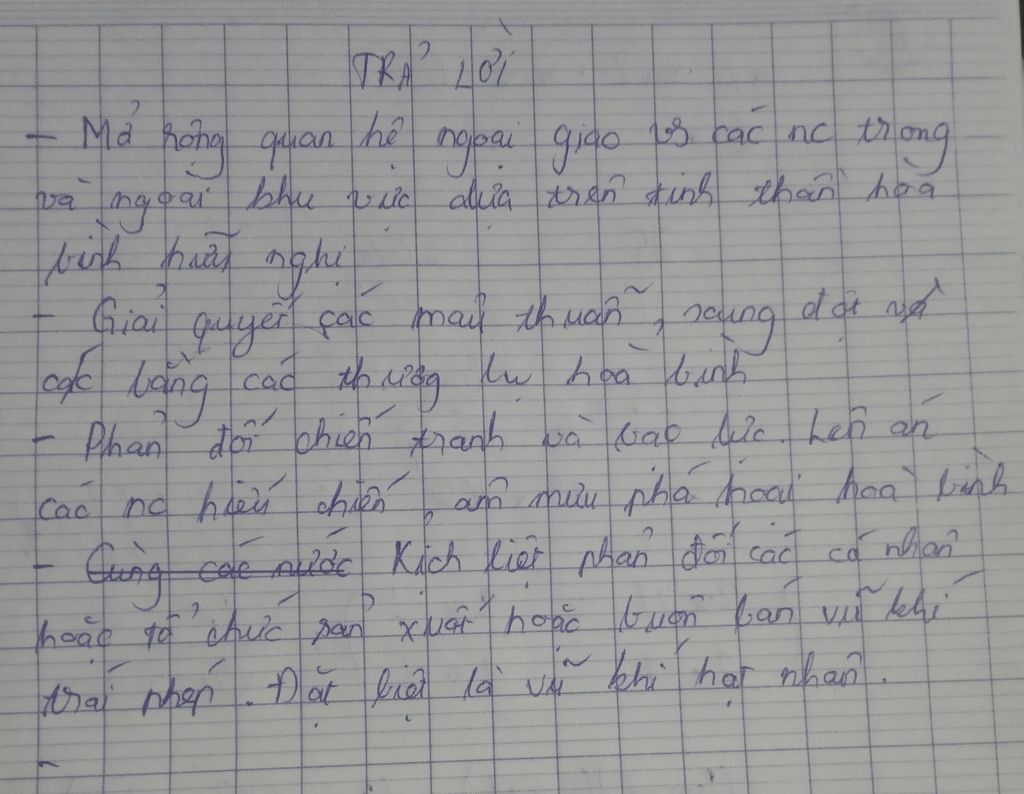 TRẢ LỜI
- Mở rộng quan hệ ngoại giao vs các nc trong
và ngoài khu vực dựa trên tinh thần hoà
bình hữu nghị
- Giải quyết các mâu thuẫn, xung đột
bằng các thương lự hoà bình
- Phản đối chiến tranh và bạo lực. Lên án
các nc hiếu chiến, âm mưu phá hoại hoà bình
- Cùng các nước Kịch liệt phản đối các cá nhân
hoặc tổ chức sản xuất hoặc buôn bán vũ khí
trái phép. Đặt biệt là vũ khí hạt nhân.
-